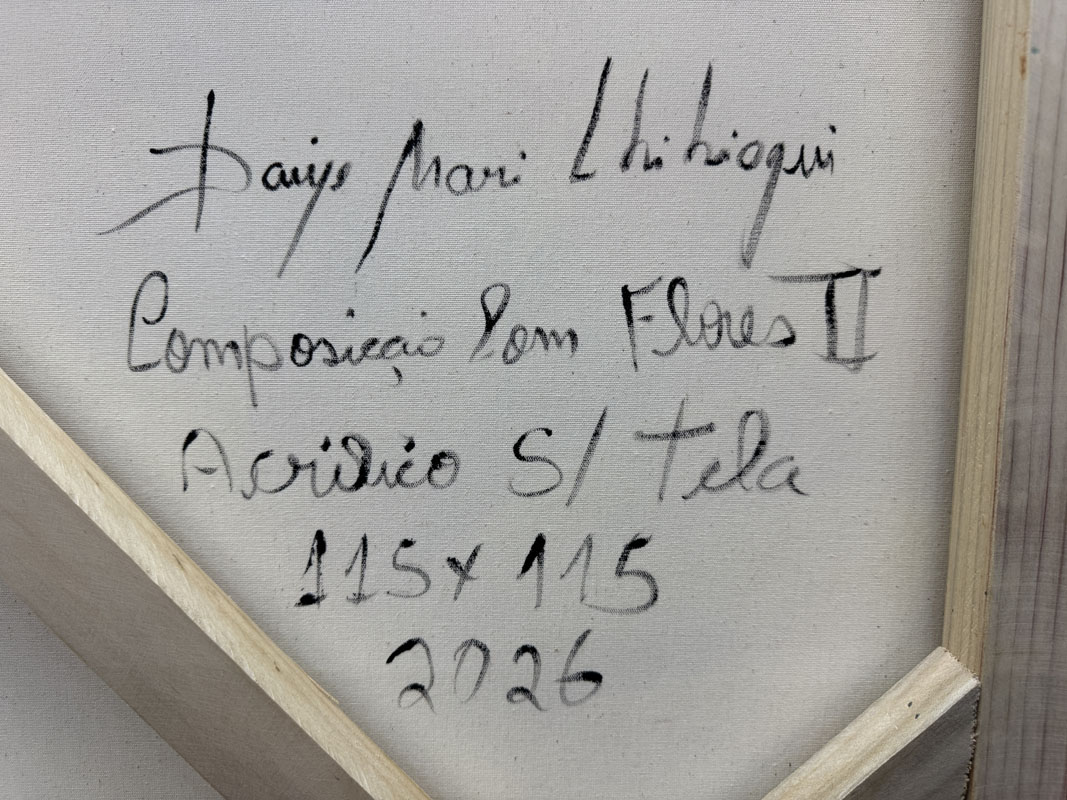 Dayse Mari Chihiogui
Composição Com Flores II
Acrílico S/ Tela
115x115
2026